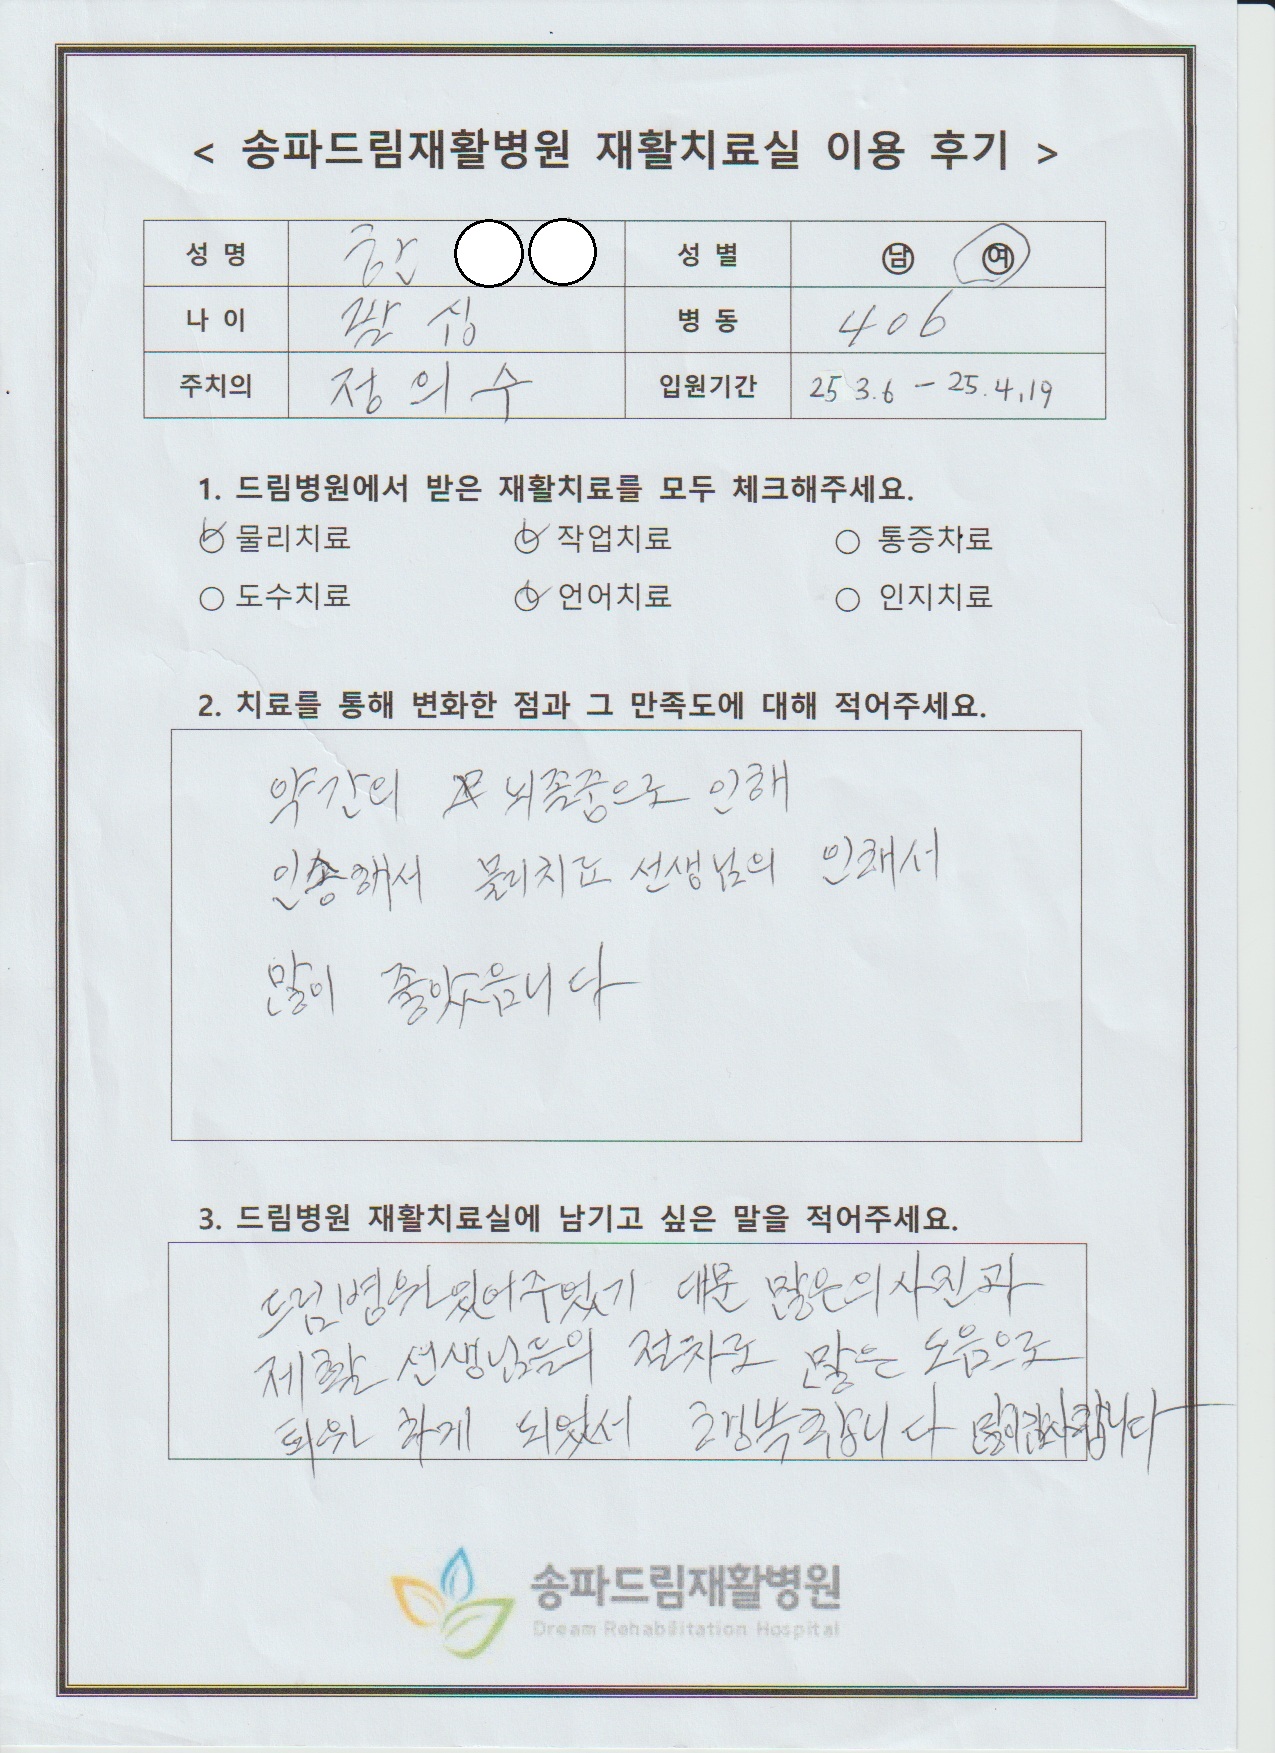 < 송파드림재활병원 재활치료실 이용 후기 >
성 명 한 성 별 남 여
나 이 팔 십 병 동 406
주치의 정 의 수 입원기간 25 3.6 - 25.4.19
1. 드림병원에서 받은 재활치료를 모두 체크해주세요.
물리치료 작업치료 통증차료
도수치료 언어치료 인지치료
2. 치료를 통해 변화한 점과 그 만족도에 대해 적어주세요.
약간의 뇌졸중으로 인해
해서 물리치료 선생님의 인해서
많이 좋았읍니다
3. 드림병원 재활치료실에 남기고 싶은 말을 적어주세요.
드림병원 있어주었기 대문 많은 의사진과
제활 선생님들의 절차로 많은 도움으로
퇴원 하게 되었서 행복합니다 많이감사합니다
송파드림재활병원
Dream Rehabilitation Hospital